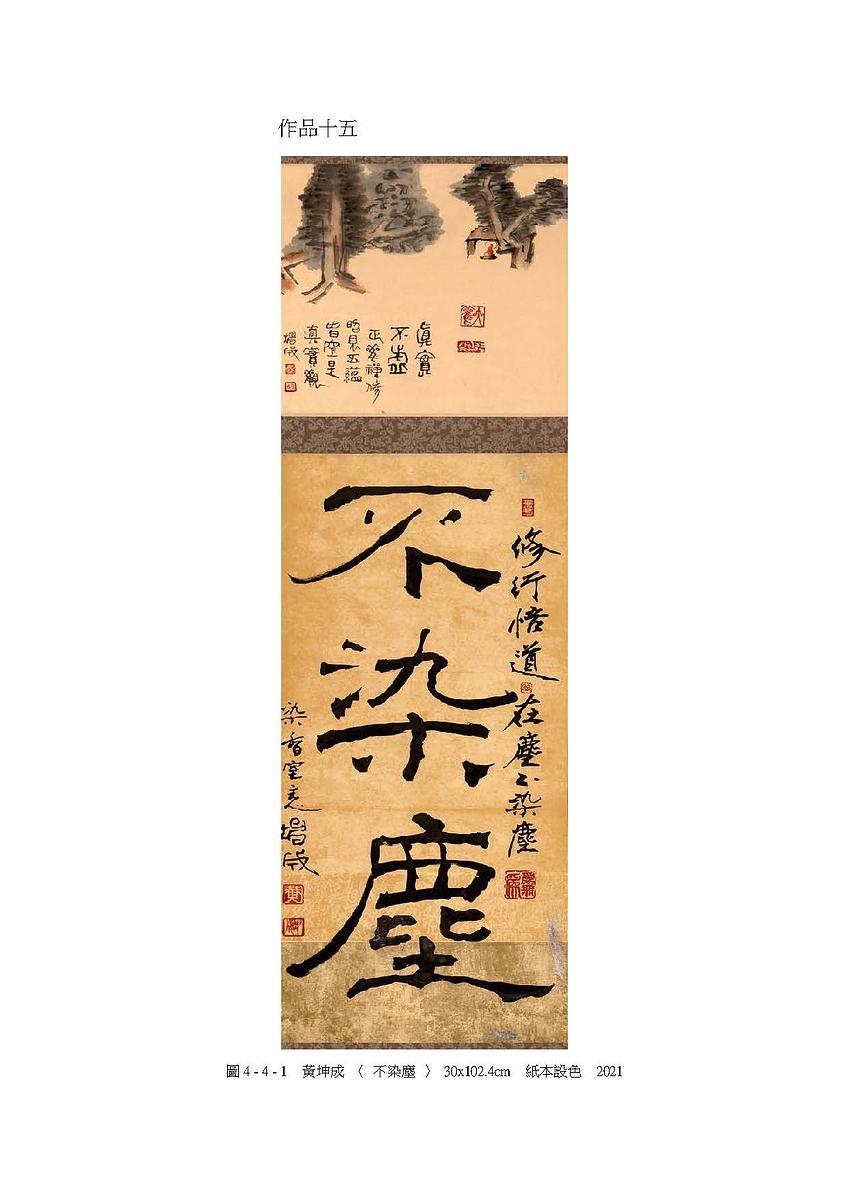 作品十五
眞實
不虛
正覺禪修
照見五蘊
皆空是
眞實觀
修行悟道 在塵不染塵
不染塵
染香室
圖 4 - 4 - 1 黃坤成 〈 不染塵 〉 30x102.4cm 紙本設色 2021